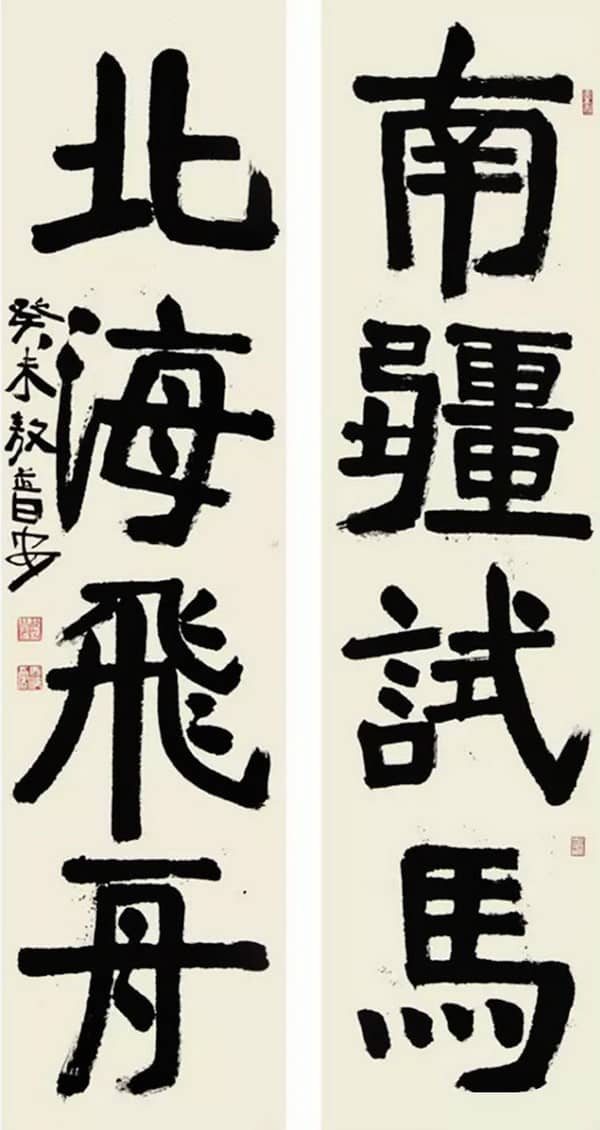 南疆試馬
北海飛舟
癸未敖普安